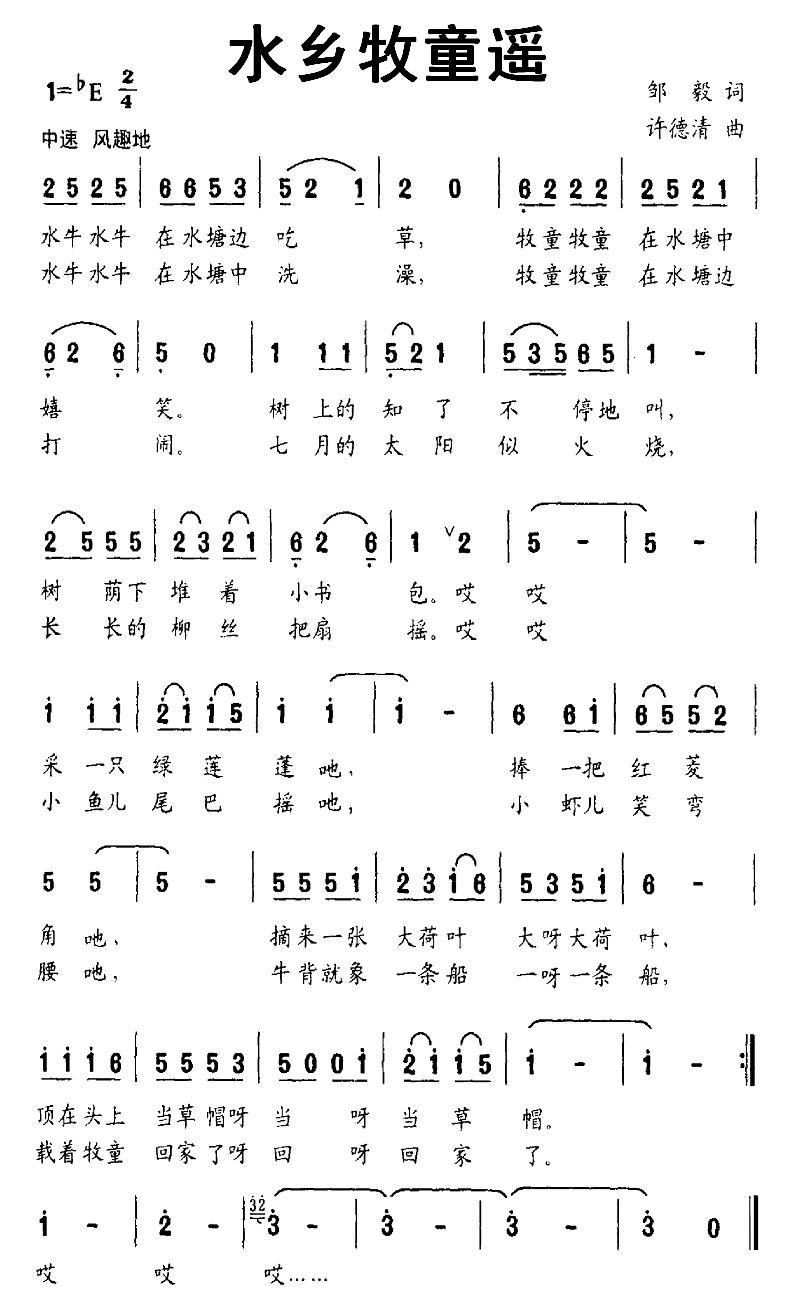 水乡牧童遥
1=♭E 2/4
邹 毅 词
中速 风趣地
许德清 曲
2 5 2 5 | 6 6 5 3 | 5 2 1 | 2 0 | 6̣ 2 2 2 | 2 5 2 1 |
水牛水牛 在水塘边 吃 草, 牧童牧童 在水塘中
水牛水牛 在水塘中 洗 澡, 牧童牧童 在水塘边
6̣ 2 6̣ | 5̣ 0 | 1 1 1 | 5̣ 2 1 | 5 3 5 6 5 | 1 - |
嬉 笑。 树 上的 知 了 不 停地 叫,
打 闹。 七 月的 太 阳 似 火 烧,
2 5 5 5 | 2 3 2 1 | 6̣ 2 6̣ | 1 ∨ 2 | 5 - | 5 - |
树 荫下 堆 着 小书 包。哎 哎
长 长的 柳 丝 把扇 摇。哎 哎
1̇ 1̇ 1̇ | 2̇ 1̇ 1̇ 5 | 1̇ 1̇ | 1̇ - | 6 6 1̇ | 6 5 5 2 |
采 一只 绿 莲 蓬 吔, 捧 一把 红 菱
小 鱼儿 尾 巴 摇 吔, 小 虾儿 笑 弯
5 5 | 5 - | 5 5 5 1̇ | 2̇ 3̇ 1̇ 6 | 5 3 5 1̇ | 6 - |
角 吔、 摘来一张 大荷叶 大呀大荷 叶、
腰 吔、 牛背就象 一条船 一呀一条 船,
1̇ 1̇ 1̇ 6 | 5 5 5 3 | 5 0 0 1̇ | 2̇ 1̇ 1̇ 5 | 1̇ - | 1̇ - :‖
顶在头上 当草帽呀 当 呀 当 草 帽。
载着牧童 回家了呀 回 呀 回 家 了。
1̇ - | 2̇ - | 3̇2̇ 3̇ - | 3̇ - | 3̇ - | 3̇ 0 ‖
哎 哎 哎……